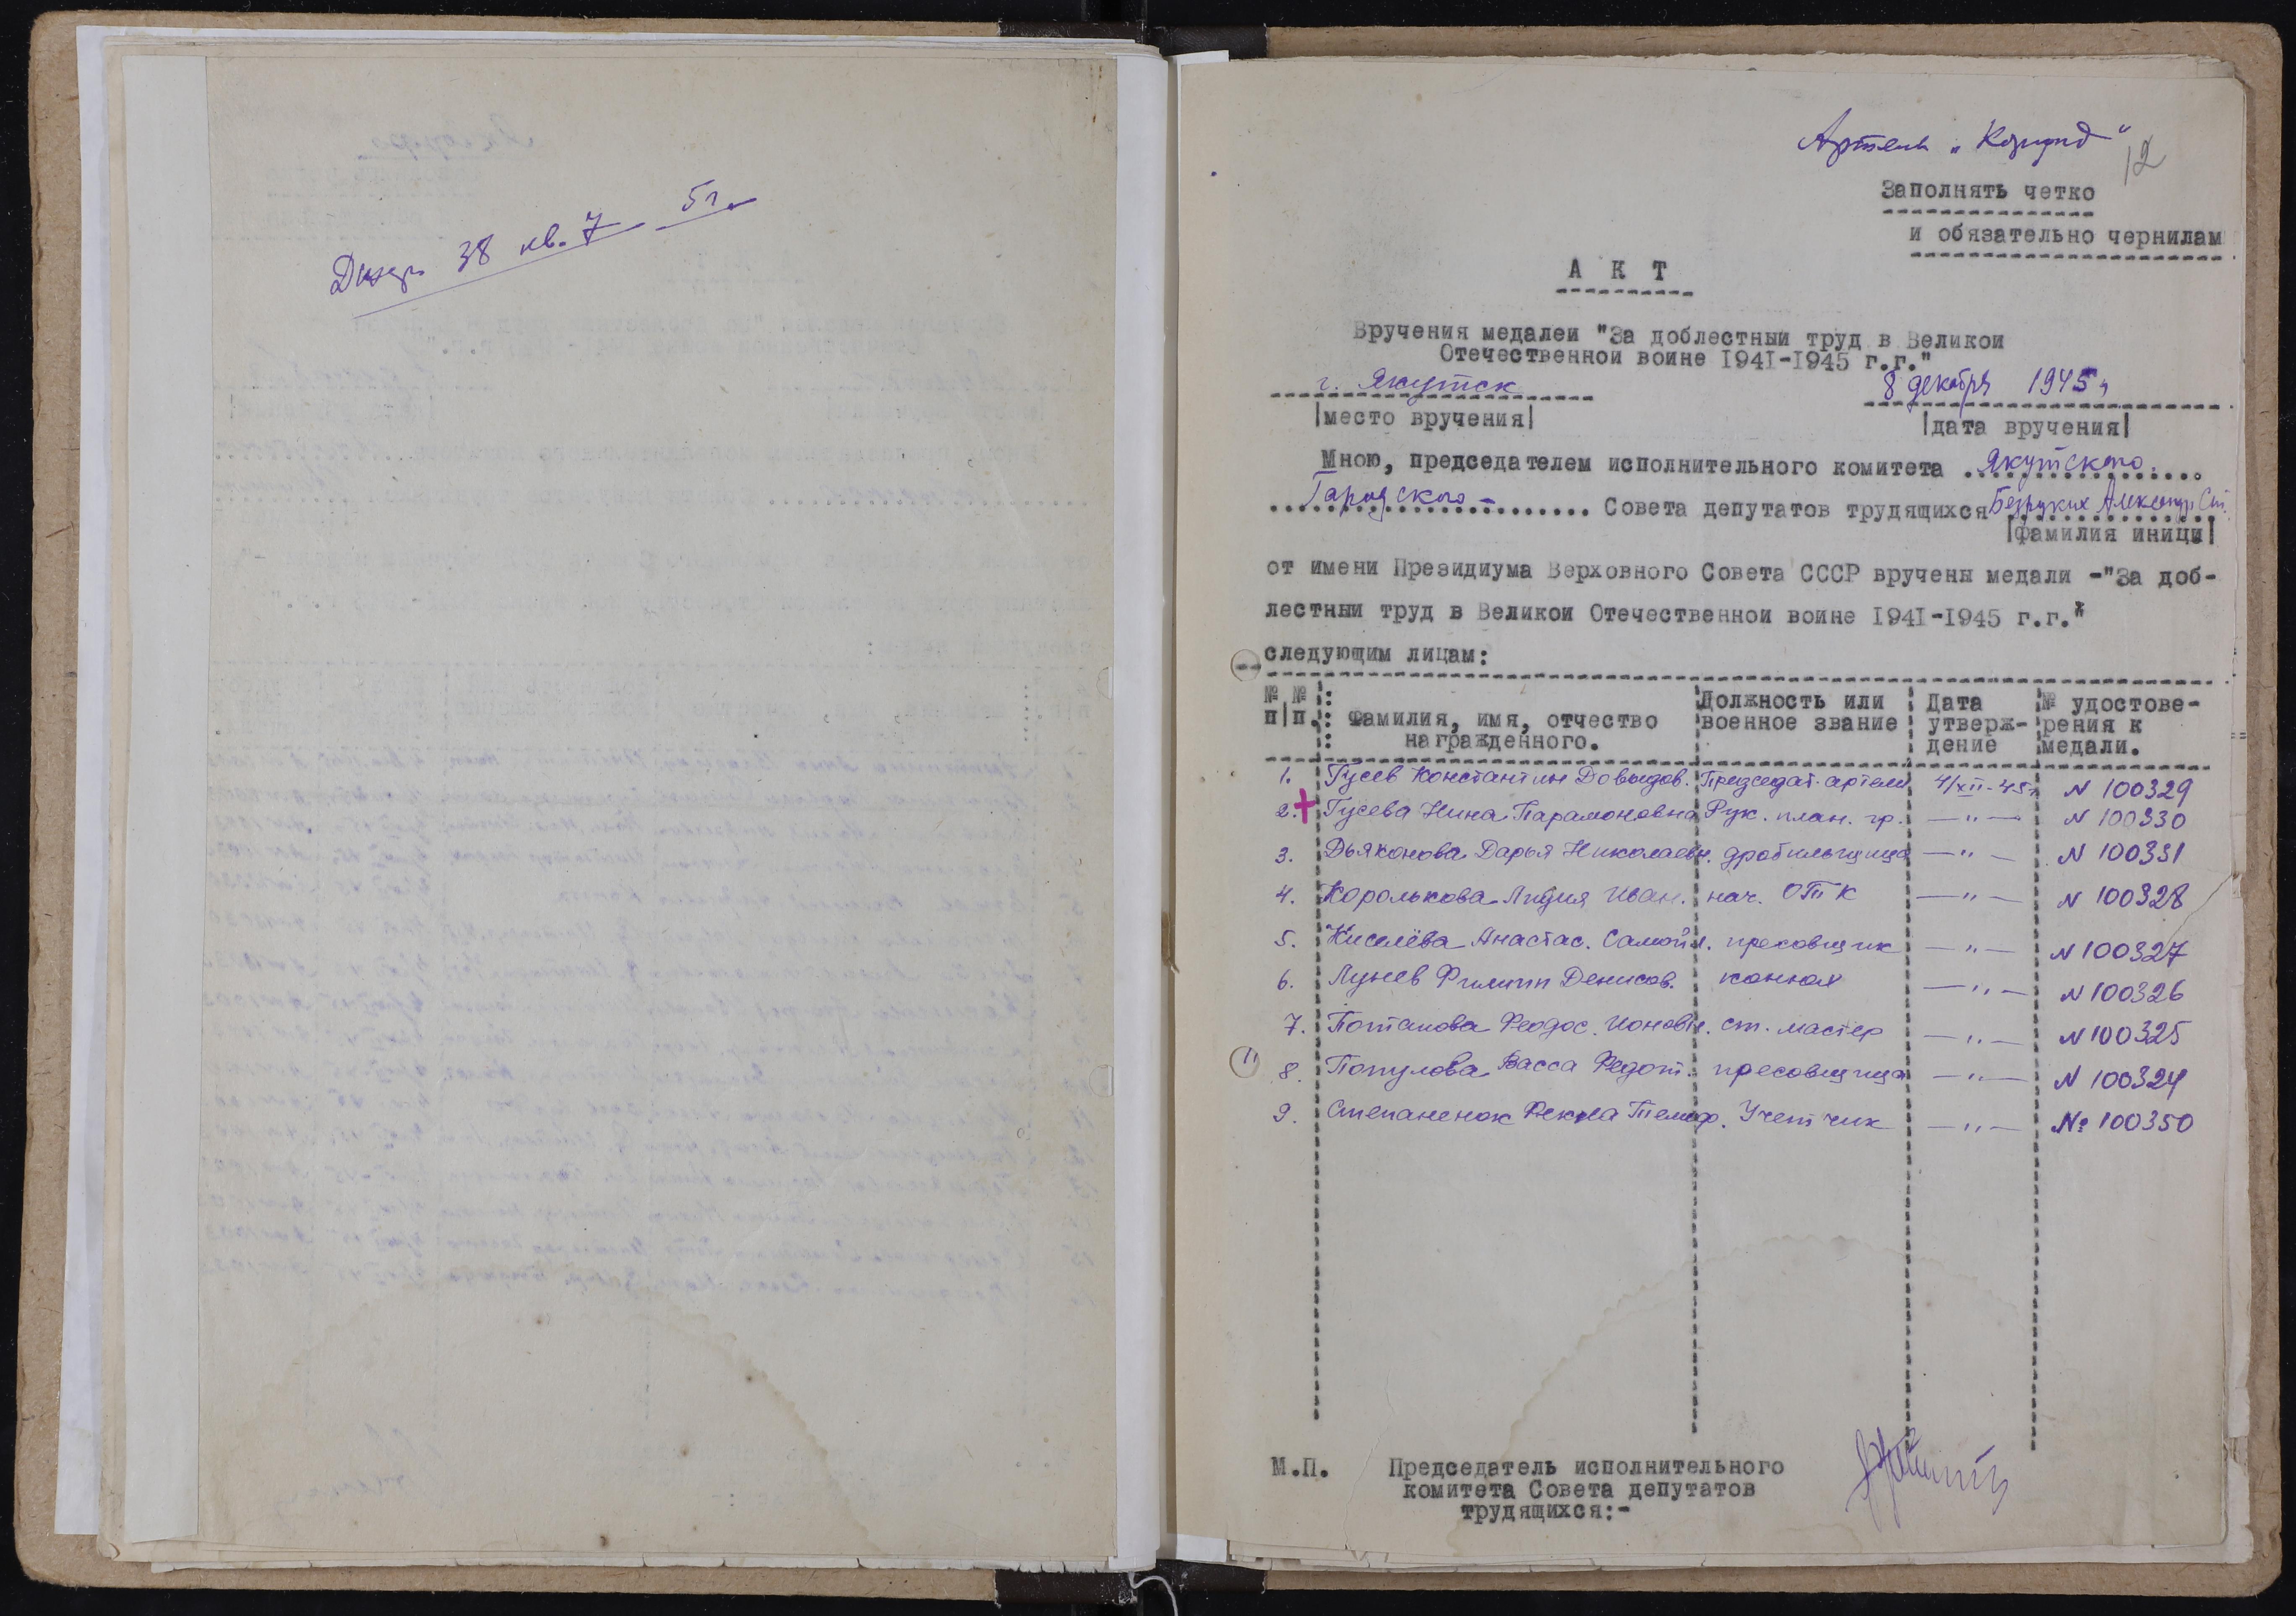 38 кв. 7 5г.
Артель „Корунд"
12
Заполнять четко
и обязательно чернилам
А К Т
Вручения медалеи "За доблестныи труд в Великои
Отечественнои воине 1941-1945 г.г."
г. Якутск
8 декабря 1945 г
|место вручения|
|дата вручения|
Мною, председателем исполнительного комитета Якутского
Городского Совета депутатов трудящихся Безруких Александр Ст.
|фамилия иници|
от имени Президиума Верховного Совета СССР вручены медали -"За доб-
лестныи труд в Великои Отечественнои воине 1941-1945 г.г."
следующим лицам:
№ № п|п. : Фамилия, имя, отчество награжденного. Должность или военное звание Дата утверж-дение № удостове-рения к медали.
1. Гусев Константин Довыдов. Председат. артели 4/XII-45г N 100329
2. + Гусева Нина Парамоновна Рук. план. гр. —"— N 100330
3. Дьяконова Дарья Николаевн. дробильщица —"— N 100331
4. Королькова Лидия Иван. нач. ОТК —"— N 100328
5. Киселёва Анастас. Самойл. пресовщик —"— N 100327
6. Лунев Филипп Денисов. конюх —"— N 100326
7. Потапова Феодос. Ионовн. ст. мастер —"— N 100325
8. Популова Васса Федот. пресовщица —"— N 100324
9. Степаненок Фекла Тимоф. Учетчик —"— № 100350
М.П. Председатель исполнительного
комитета Совета депутатов
трудящихся:-